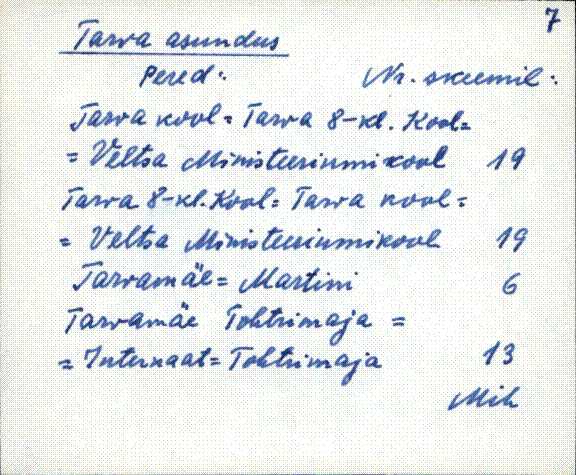 7
Tarva asundus
Pered: Nr. skeemil:
Tarva kool = Tarva 8-kl. Kool=
= Veltsa Ministeeriumikool 19
Tarva 8-kl. Kool = Tarva kool =
= Veltsa Ministeeriumikool 19
Tarvamäe = Martini 6
Tarvamäe Tohtrimaja =
= Internaat = Tohtrimaja 13
Mih